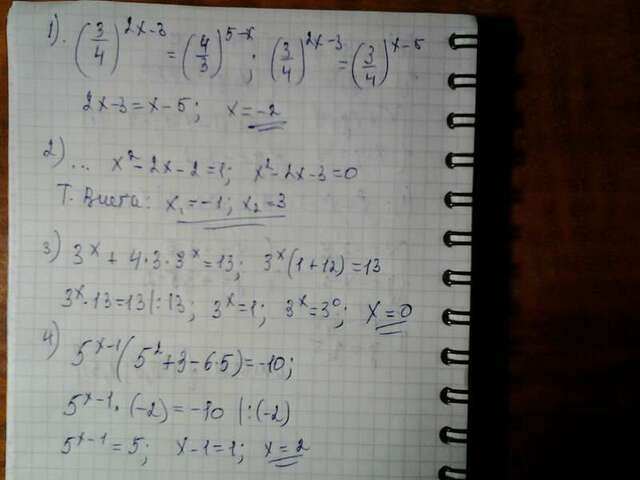 1). (3/4)^(2x-3) = (4/3)^(5-x); (3/4)^(2x-3) = (3/4)^(x-5)
2x-3=x-5; x=-2
2) ... x²-2x-2=1; x²-2x-3=0
Т. Виета: x₁=-1; x₂=3
3) 3^x + 4·3·3^x=13; 3^x(1+12)=13
3^x·13=13 |:13; 3^x=1; 3^x=3^0; X=0
4) 5^(x-1)(5²+3-6·5)=-10;
5^(x-1)·(-2)=-10 |:(-2)
5^(x-1)=5; x-1=1; x=2